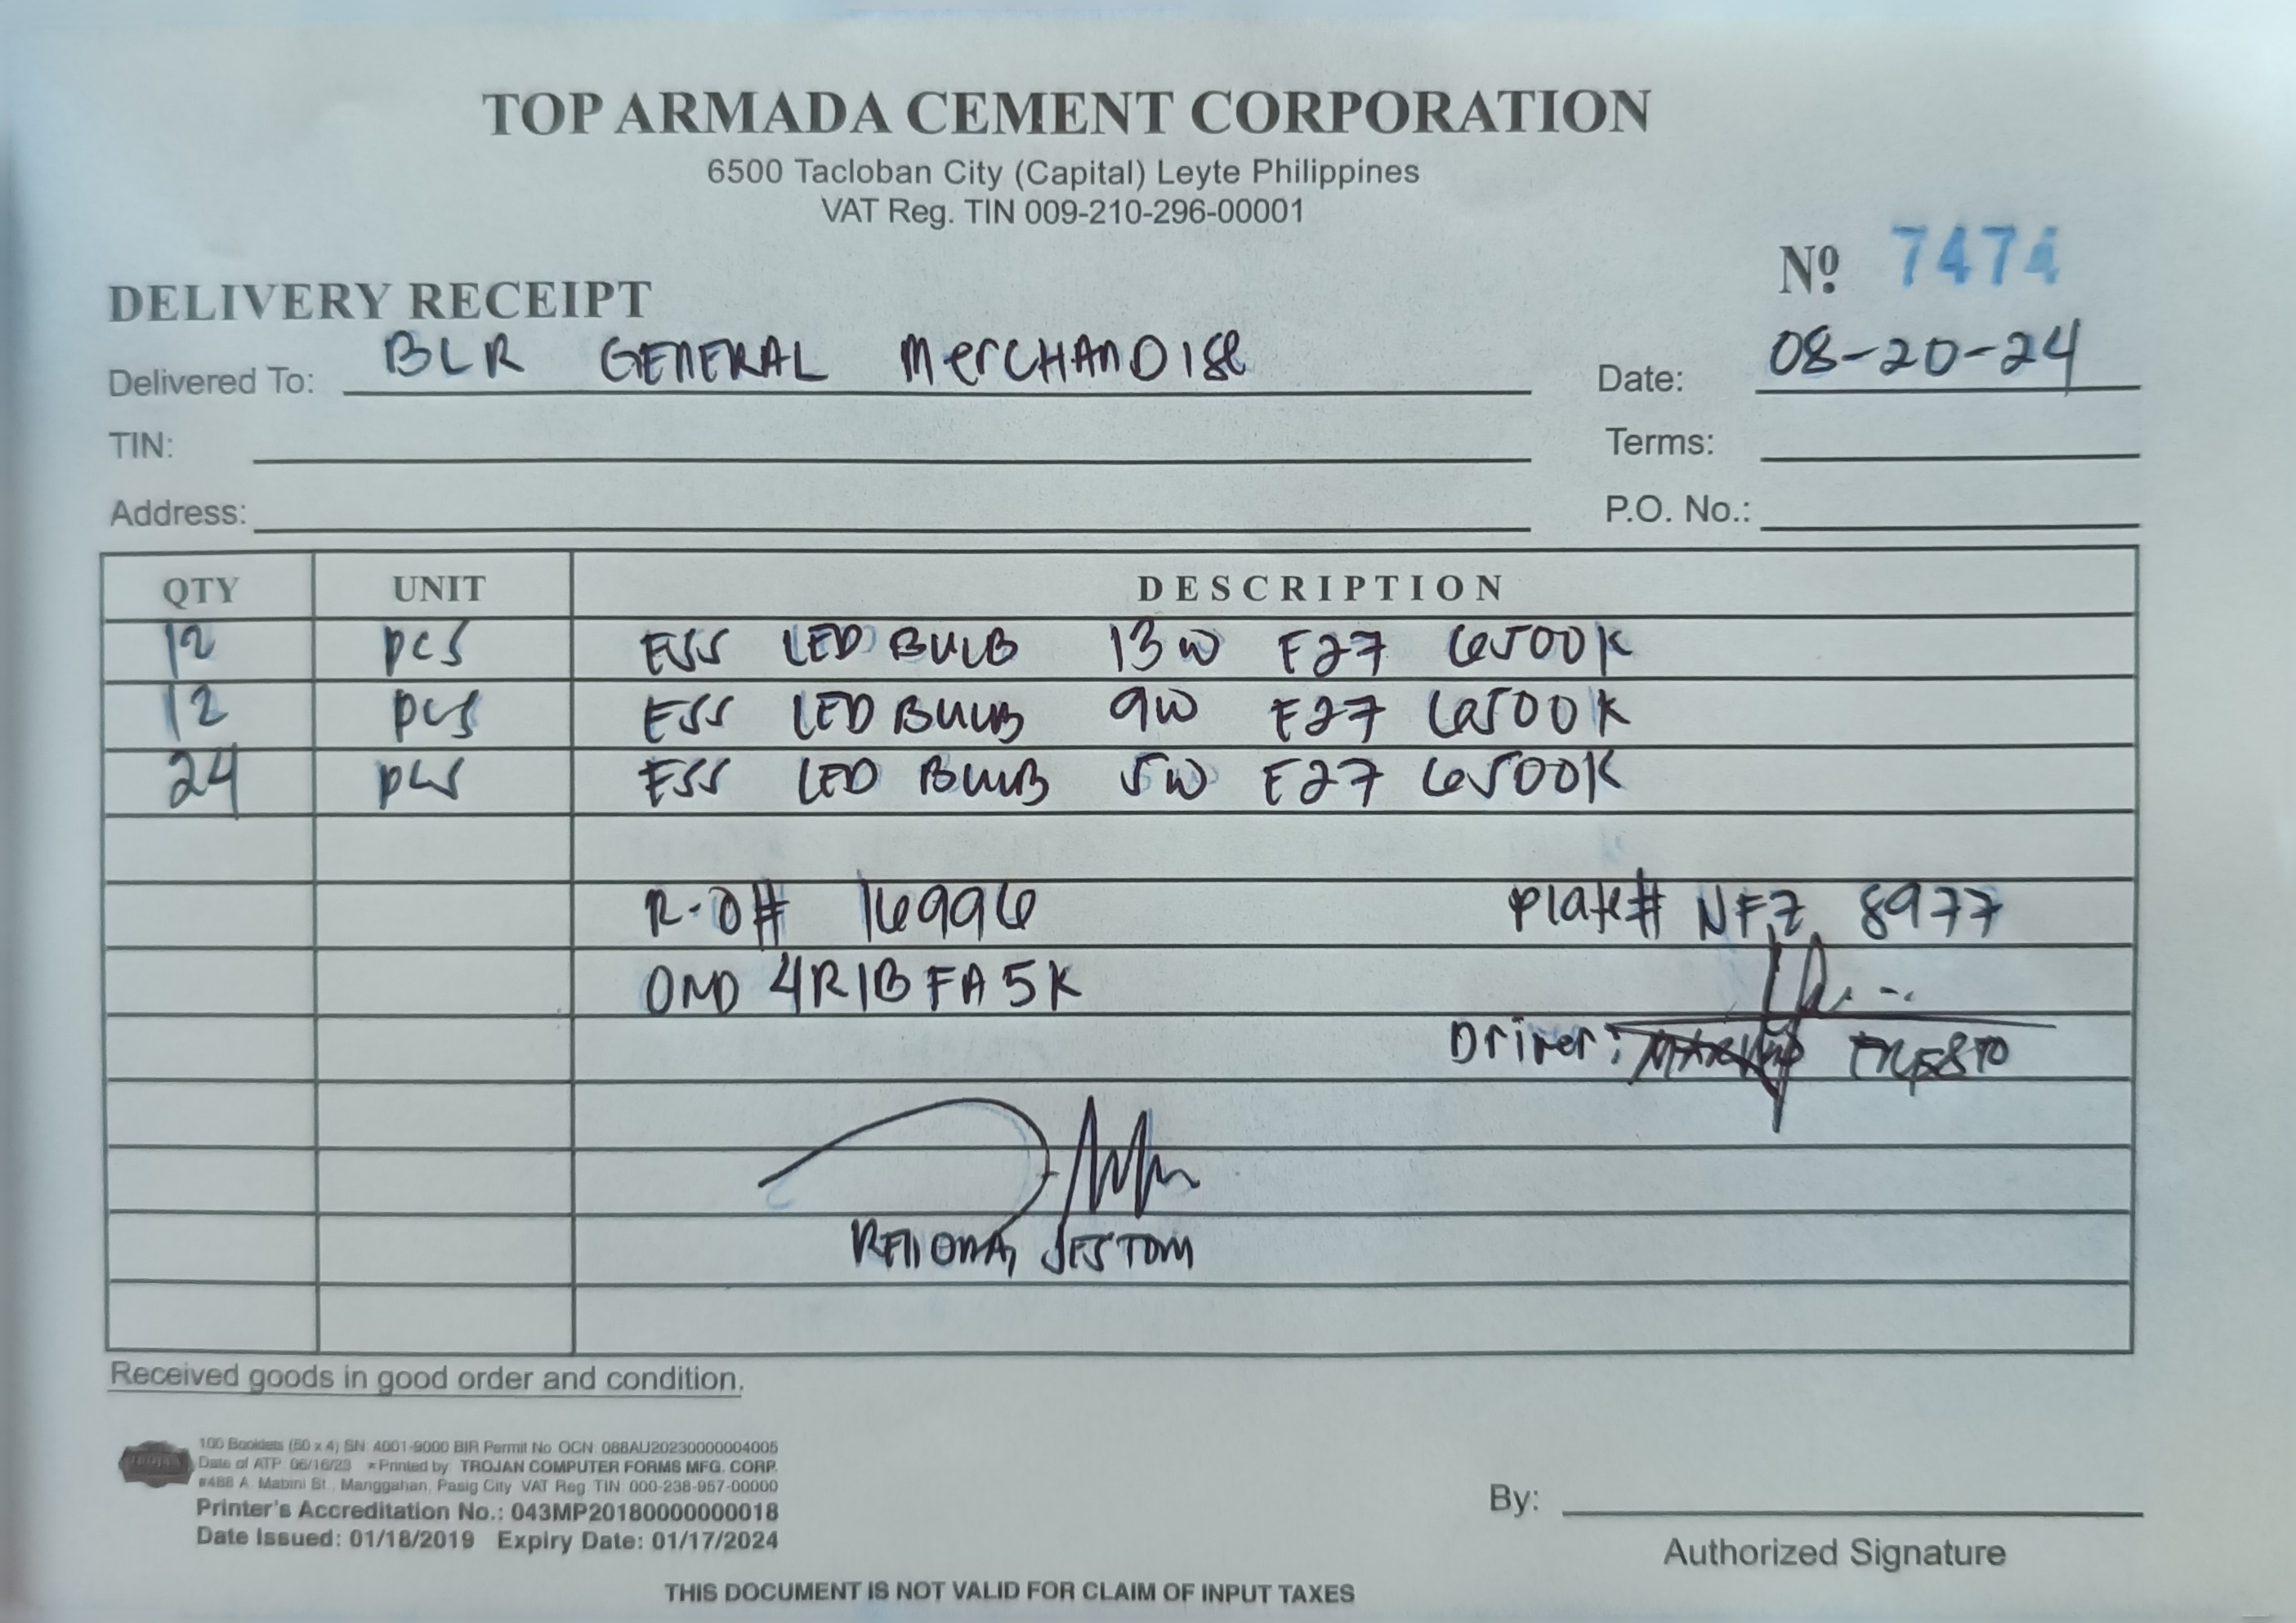 TOP ARMADA CEMENT CORPORATION
6500 Tacloban City (Capital) Leyte Philippines
VAT Reg. TIN 009-210-296-00001
Nº 7474
DELIVERY RECEIPT
Delivered To: BLR GENERAL MERCHANDISE Date: 08-20-24
TIN: Terms:
Address: P.O. No.:
QTY UNIT DESCRIPTION
12 pcs ESS LED BULB 13W E27 6500K
12 pcs ESS LED BULB 9W E27 6500K
24 pcs ESS LED BULB 5W E27 6500K
R-O# 16996 Plate# NFZ 8977
OND 4R1BFA5K
Driver:
Received goods in good order and condition.
100 Booklets (50 x 4) SN: 4001-9000 BIR Permit No. OCN: 088AU20230000004005
Date of ATP: 06/16/23 *Printed by: TROJAN COMPUTER FORMS MFG. CORP.
#488 A. Mabini St., Manggahan, Pasig City VAT Reg. TIN: 000-238-957-00000
Printer's Accreditation No.: 043MP20180000000018
Date Issued: 01/18/2019 Expiry Date: 01/17/2024
By:
Authorized Signature
THIS DOCUMENT IS NOT VALID FOR CLAIM OF INPUT TAXES